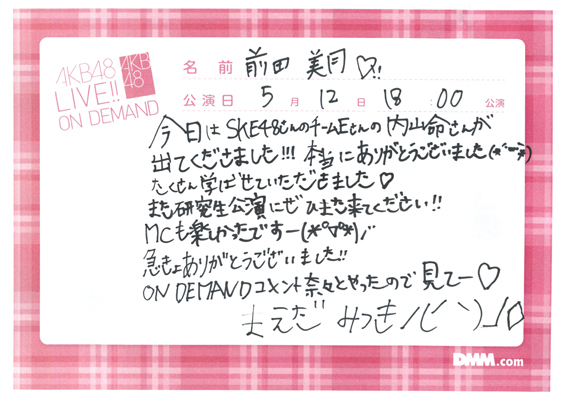 AKB48
LIVE!!
ON DEMAND
AKB
48
名前 前田 美月♡!!
公演日 5月12日 18:00公演
今日はSKE48さんのチームEさんの内山命さんが
出てくださました!!! 本当にありがとうございました(*^ー^*)
たくさん学ばせていただきました♡
また研究生公演にぜひまた来てください!!
MCも楽しかったですー(*°∇°*)ﾉﾞ
急きょありがとうございました!!
ON DEMANDコメント奈々とやったので見てー♡
まえだ みつき
DMM.com